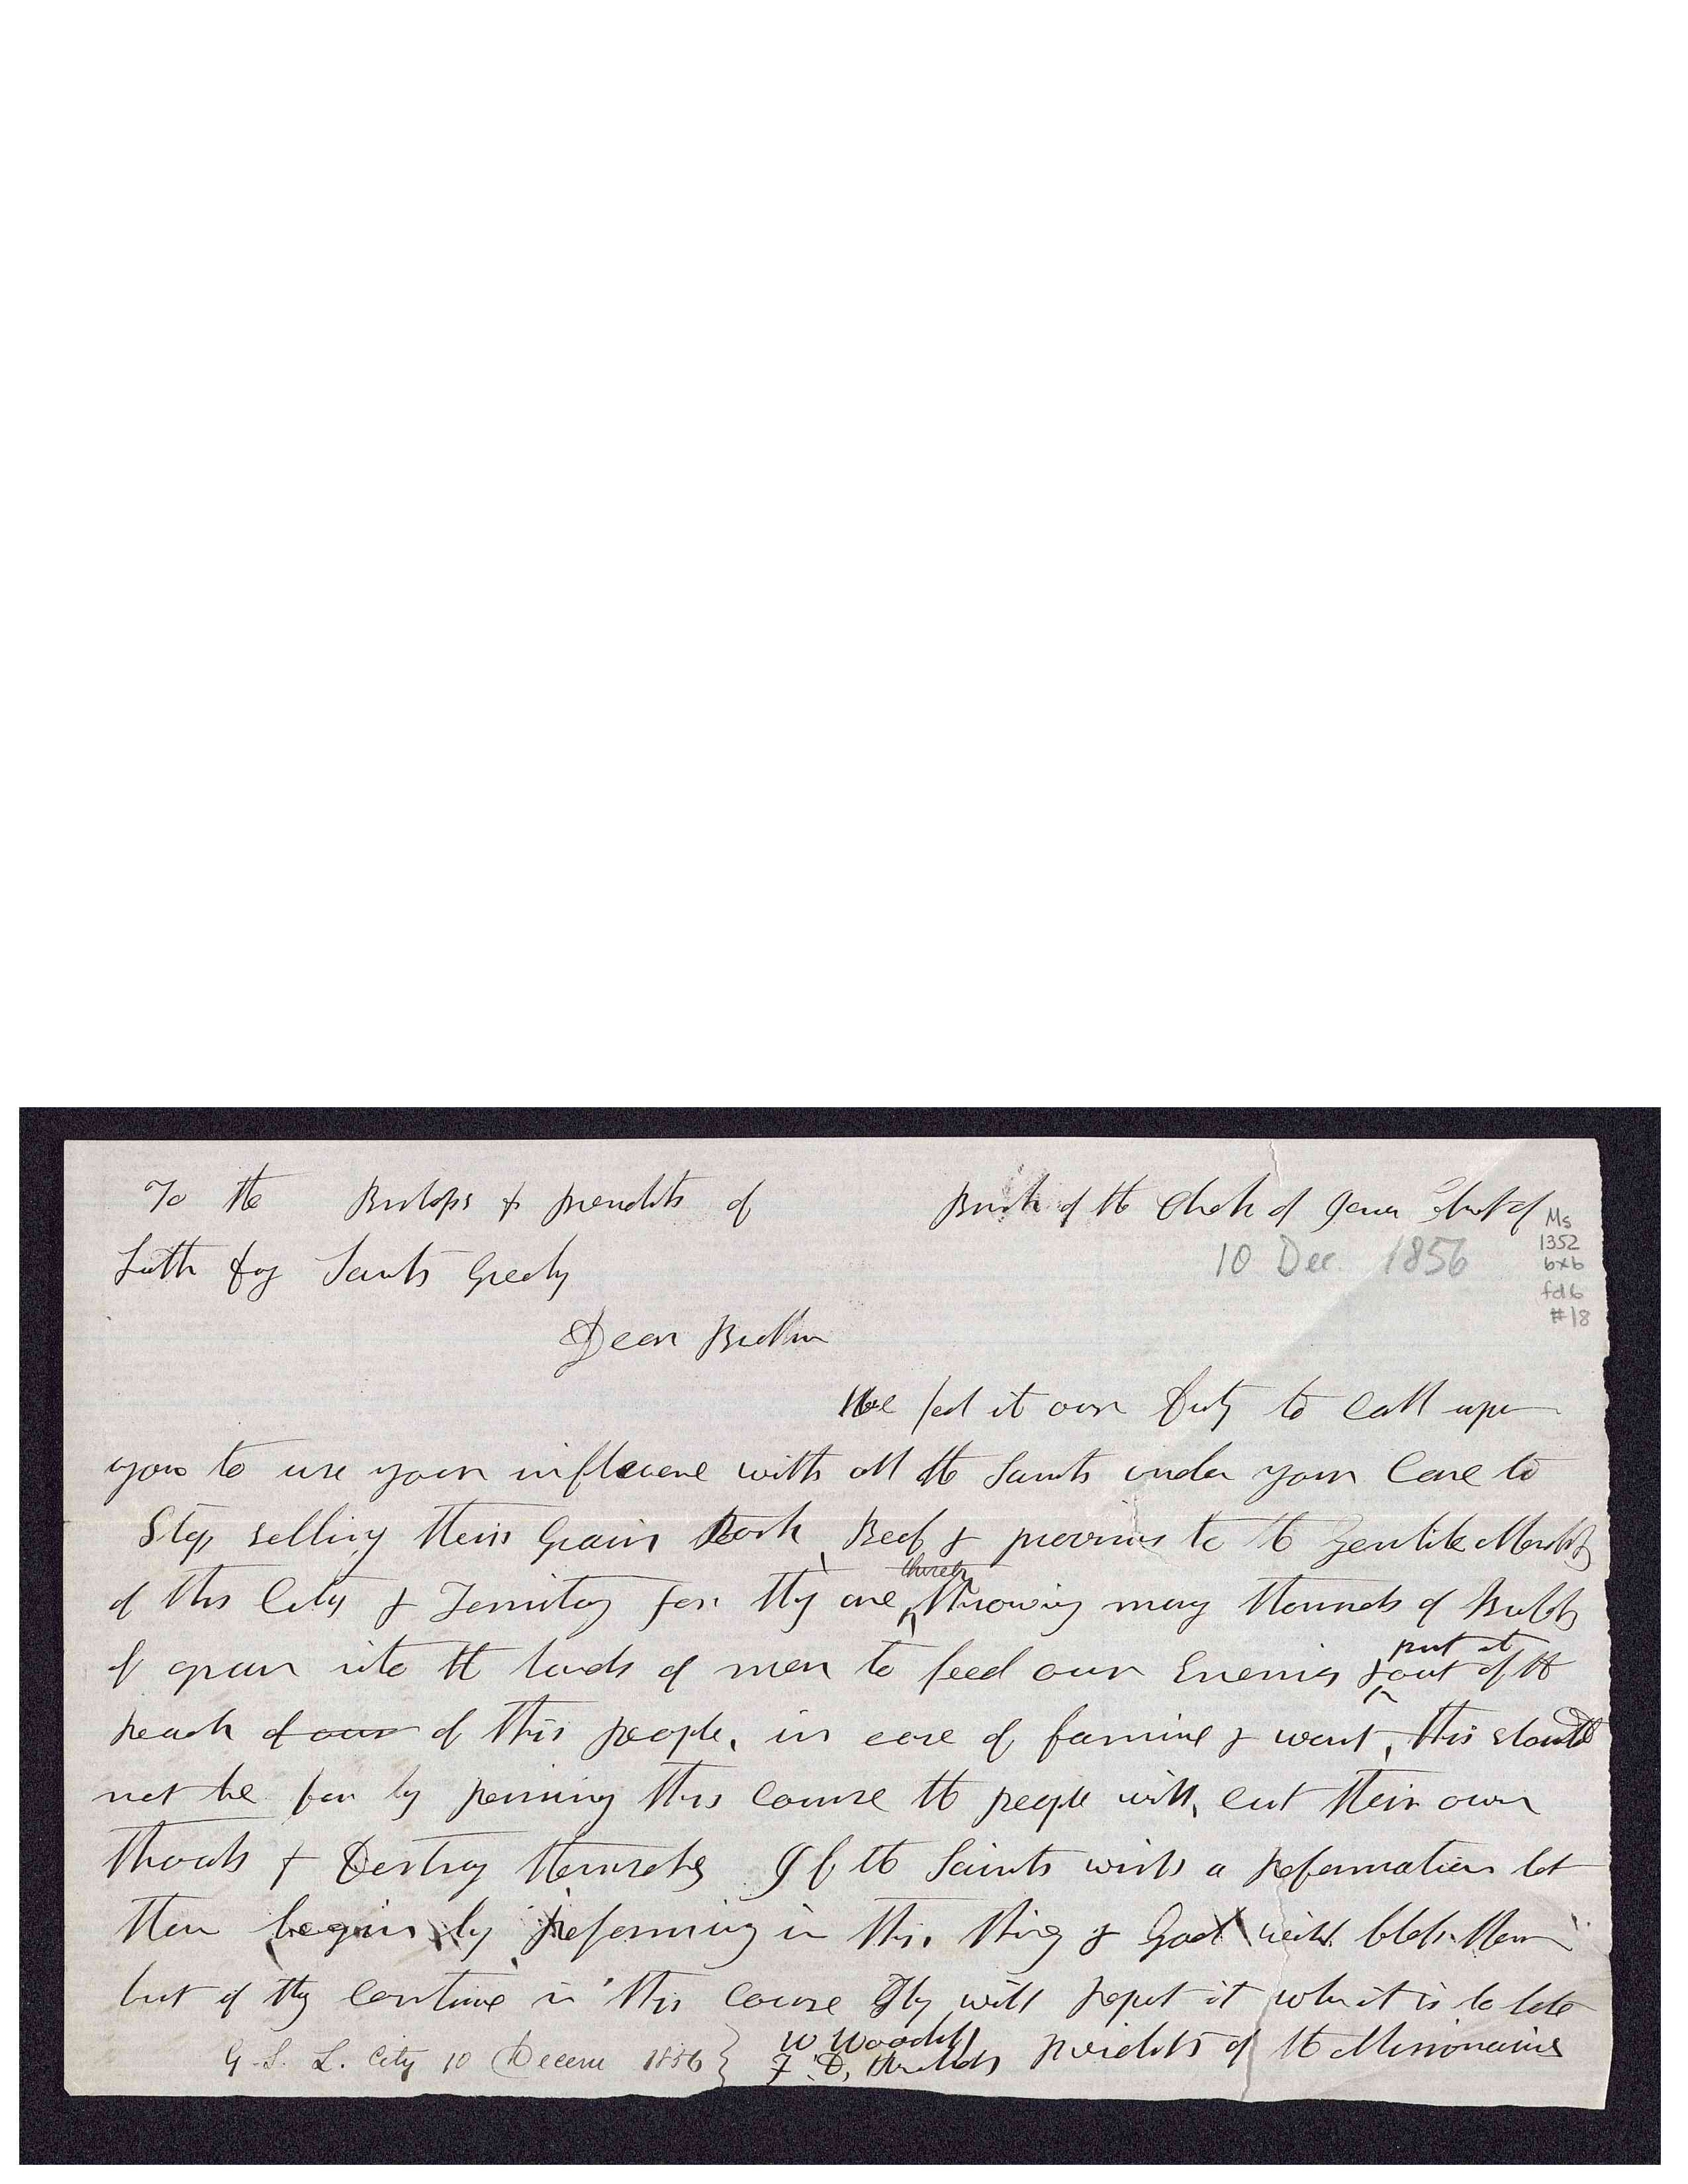 To the Bishops & presidets of Brnch of the Chch of Jesus Christ of
Latth Day Saints Greeting
10 Dec. 1856
Ms
1352
bx6
fd6
#18
Dear Brethrn
We feel it our duty to call upon
you to use your influence with all the Saints under your Care to
Stop selling their Grain Pork, Beef & provisins to the Gentile
of this City & Territoy for they are thereby throwing many thounds of
of grain into the hands of men to feed our Enemies & put it out of the
reach of our of this people, in case of famine & want, this should
not be for by persuing this course the people will, cut their own
throats & Destroy themselves If the Saints wish a reformation let
them begin by reforming in this thing & God will bless them
but if they continue in this course they will repent it when it is to late
G. S. L. City 10 Decem 1856 } W. Woodruff
F. D. Richards presidets of the Missionaries